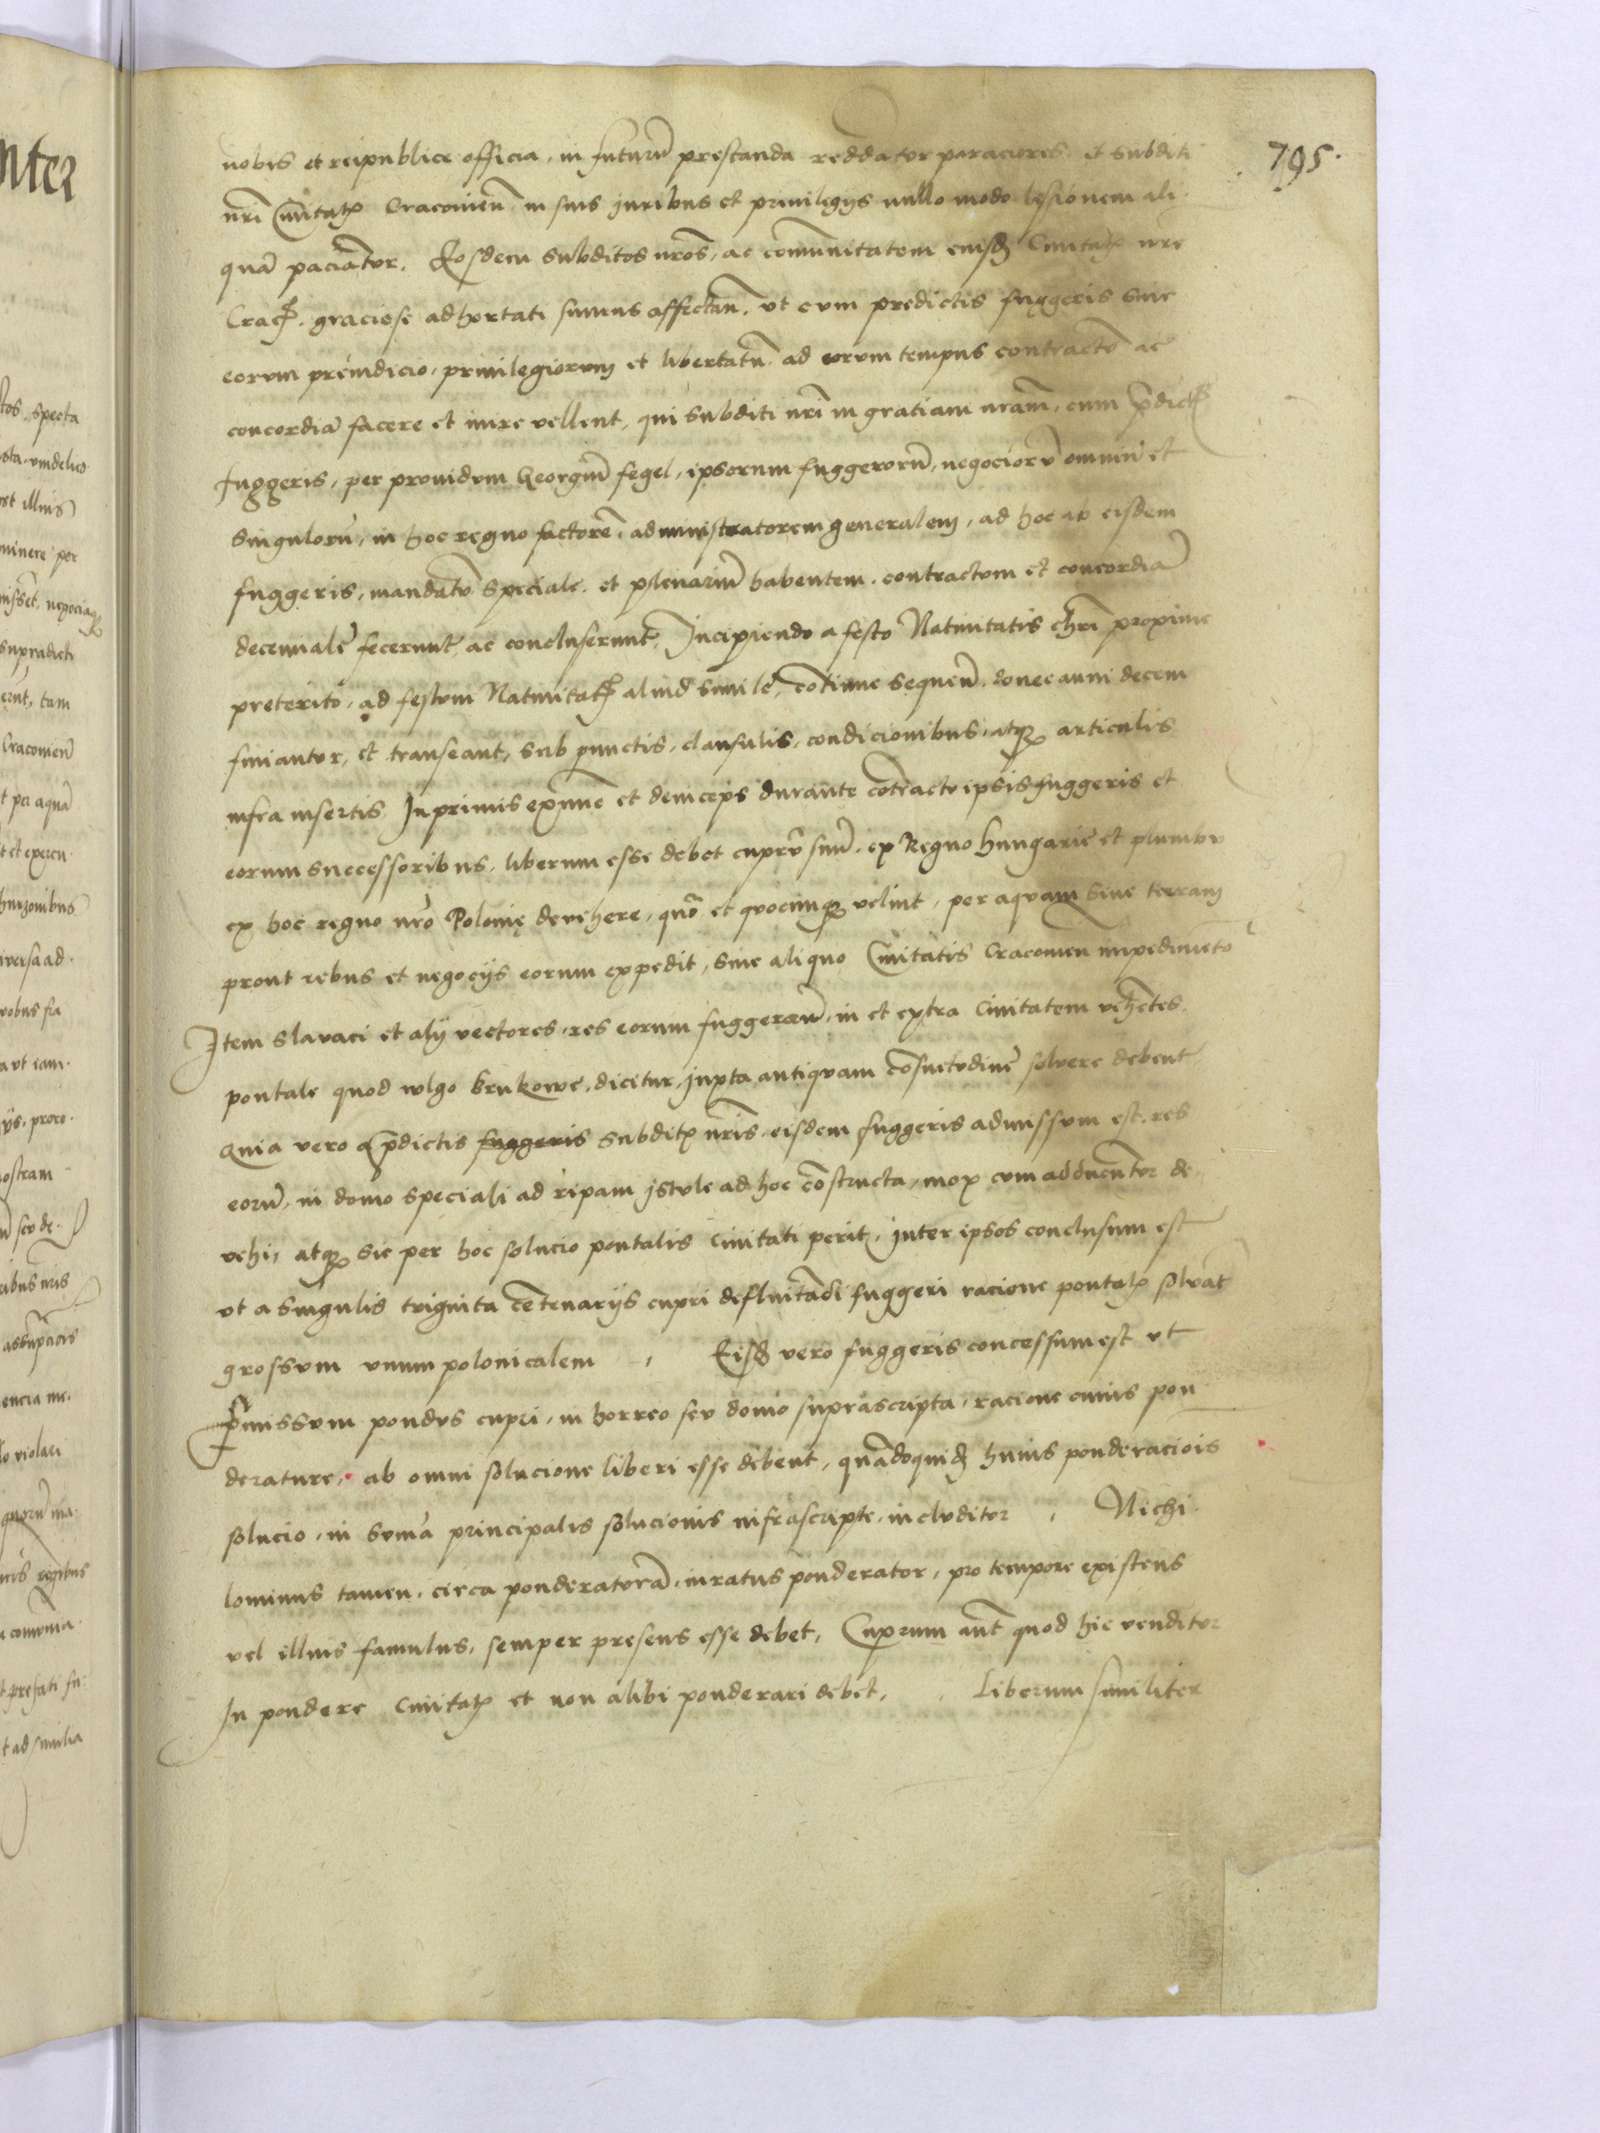 795.
nobis et reipublice officia, in futurū prestanda reddātur paraciores, et subditi
nr̄i Ciuitat; Cracouien̄ in suis juribus et priuilegijs nullo modo lesionem ali
quā paciantur. Eosdem subditos nr̄os, ac com̄unitatem eiusd; Ciuitat; nr̄e
Crac; graciose adhortati sumus affectan̄. vt cum predictis fuggeris sine
eorum preiudicio, priuilegiorum et libertatū ad certum tempus contractū ac
concordiā facere et inire vellent, qui subditi nr̄i in gratiam nram̄, cum p̄dict;
fuggeris, per prouidum Georgiū fegel, ipsorum fuggerorū, negociorū omniū et
singulorū, in hoc regno factorē, administratorem generalem, ad hoc ab eisdem
fuggeris, mandatū speciale et plenariū habentem. contractum et concordiā
decennalē fecerunt, ac concluserunt, Incipiendo a festo Natiuitatis chr̄i proxime
preterito, ad festum Natiuitat; aliud simile, cōtinue sequen̄. donec anni decem
finiantur, et transeant, sub punctis, clausulis, condicionibus, atq; articulis
infra insertis Inprimis exnunc et deinceps durante cōtractu ipsis fuggeris et
eorum successoribus, liberum esse debet cuprū suū, ex Regno hungarie et plumbū
ex hoc regno nr̄o Polonię deuehere, quō et quocunq; velint, per aquam siue terram
prout rebus et negocijs eorum expedit, sine aliquo Ciuitatis Cracouien̄ impedimēto
Item slauaci et alij vectores, res eorum fuggerorū, in et extra Ciuitatem vehētes.
pontale quod wlgo brukowe, dicitur, juxta antiquam cōsuetudinē soluere debent
Quia vero a p̄dictis fuggeris subdit; nr̄is eisdem fuggeris admissum est, res
eorū, in domo speciali ad ripam jstule ad hoc cōstructa, mox cum adducūtur de
vehi, atq; sic per hoc solucio pontalis Ciuitati perit, inter ipsos conclusum est
vt a singulis triginta cētenarijs cupri defluitādi fuggeri racione pontal; soluāt
grossum vnum polonicalem , Eisd; vero fuggeris concessum est vt
p̄missum pondus cupri, in horreo seu domo suprascripta, racione cuius pon
derature, ab omni solucione liberi esse debent, quādoquid; huius ponderaciois
solucio, in sum̄a principalis solucionis infrascripte, includitur , Nichi
lominus tamen, circa ponderaturā, iuratus ponderator, pro tempore existens
vel illius famulus, semper presens esse debet, Cuprum aut̄ quod hic venditur
In pondere Ciuitat; et non alibi ponderari debet, , Liberum similiter